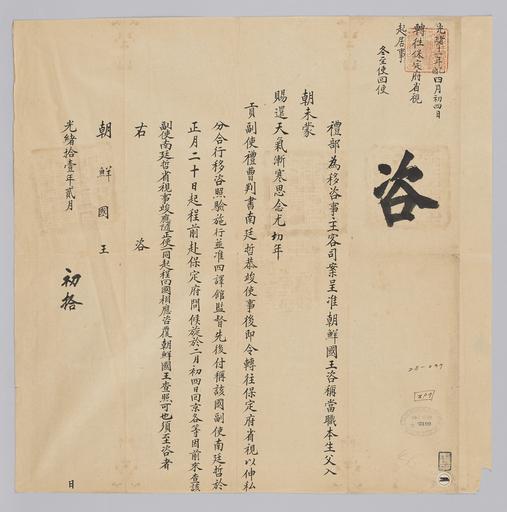 咨
光緒十一年乙酉四月初四日
轉往保定府省視
起居事
冬至使回便
禮部為移咨事主客司案呈准朝鮮國王咨稱當職本生父入
朝未蒙
賜還天氣漸寒思念尤切年
貢副使禮曹判書南廷哲恭竣使事後即令轉往保定府省視以伸私
分合行移咨照驗施行並准四譯館監督先後付稱該國副使南廷哲於
正月二十日起程前赴保定府問候旋於二月初四日回京各等因前來查該
副使南廷哲省視事竣應隨正使同起程回國相應咨覆朝鮮國王查照可也須至咨者
右咨
朝鮮國王
光緒拾壹年貳月初拾日